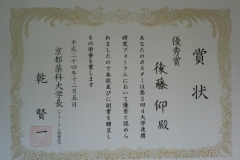 賞状
優秀賞
後藤仰殿
あなたのポスターは第24大学連携
研究フォーラムにおいて優秀と認めら
れましたので本状並びに副賞を贈呈し
その栄誉を賞します
平成二十四年十二月五日
京都薬科大学長
乾賢一